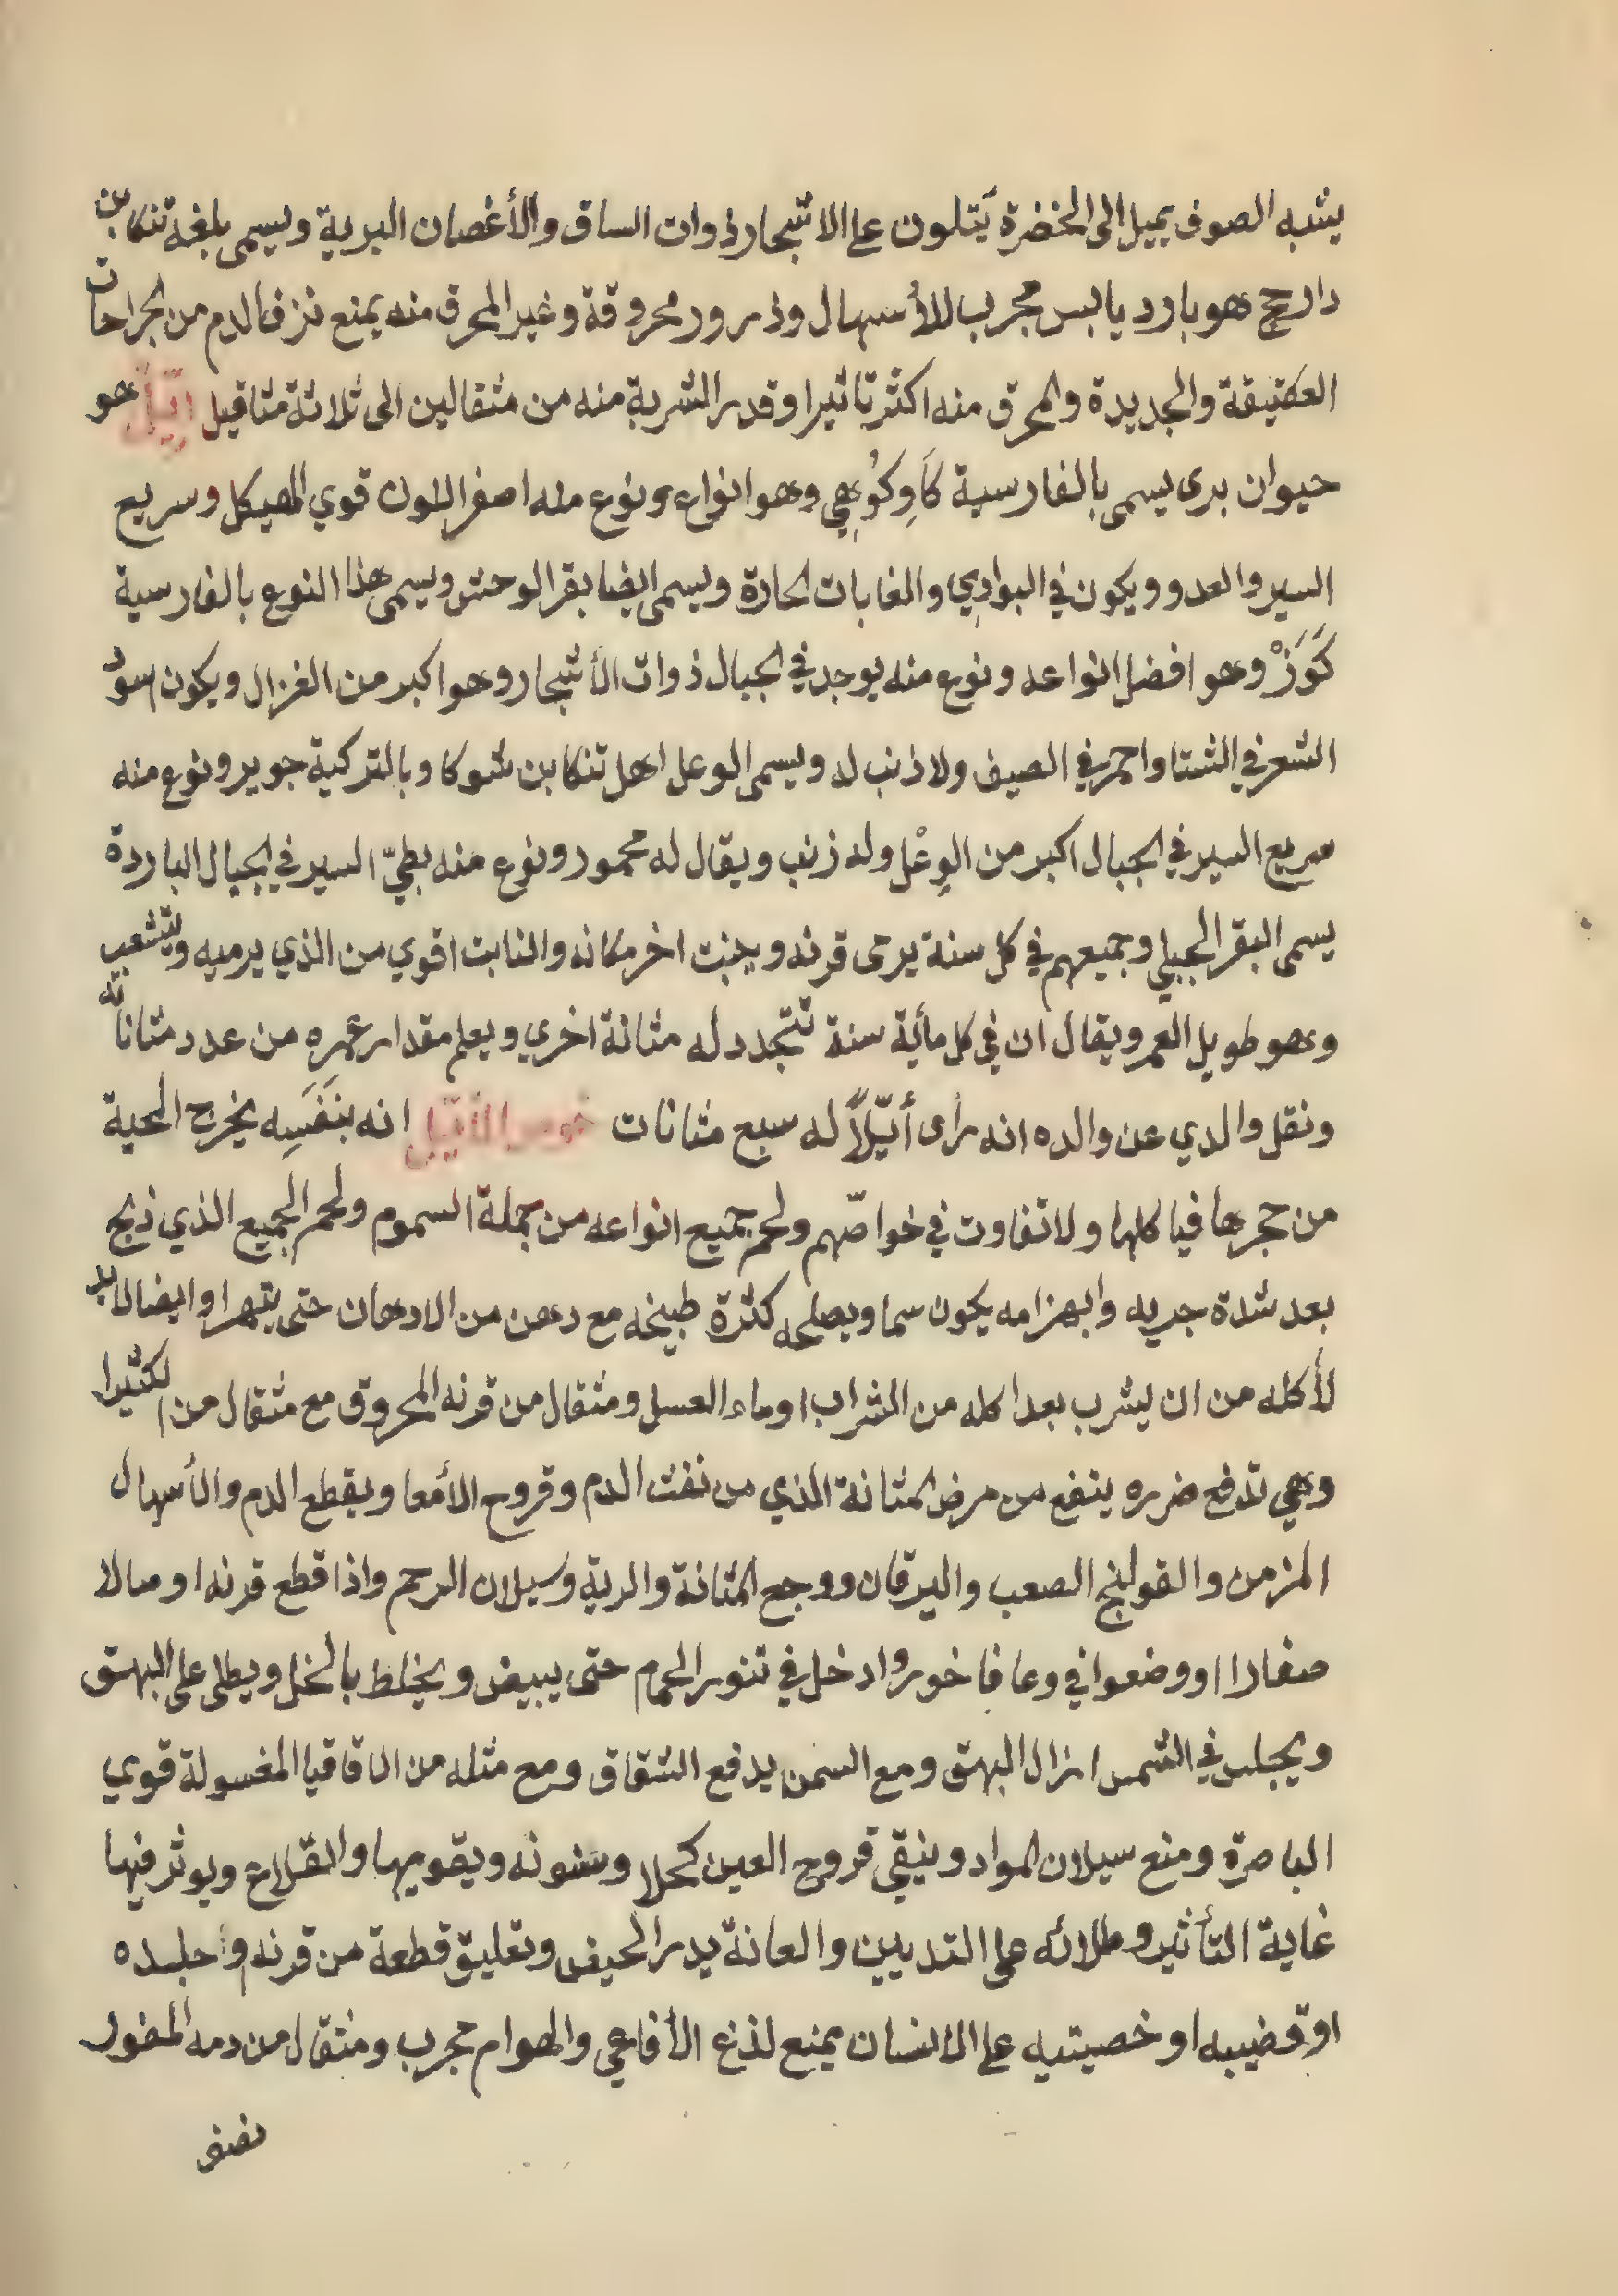 يشبه الصوف يميل الى الخضرة يَتلون على الاشجار ذوات الساق والأغصان البرية ويسمى بلغة تنكابن
دارج هو بارد يابس مجرب للأسهال وذرور محروقة وغير المحرق منه يمنع نزف الدم من الجراحات
العتيقة والجديدة والمحرق منه اكثر تاثيرا وقدر الشربة منه من مثقالين الى ثلاثة مثاقيل ايّل هو
حيوان برى يسمى بالفارسية كَاوِكُوهِي وهو انواع ونوع منه اصفر اللون قوي الهيكل وسريع
السير والعدو ويكون في البوادي والغابات الحارة ويسمى ايضا بقر الوحش ويسمى هذا النوع بالفارسية
كَوَزْ وهو افضل انواعه ونوع منه يوجد في الجبال ذوات الأشجار وهو اكبر من الغزال ويكون اسود
الشعر في الشتا واحمر في الصيف ولا ذنب له ويسمى الوعل اهل تنكابن شوكا وبالتركية جوير ونوع منه
سريع السير في الجبال اكبر من الوِعْل وله زنب ويقال له محمور ونوع منه بطيّ السير في الجبال الباردة
يسمى البقر الجبلي وجميعهم في كل سنة يرمى قرنه وينبت اخر مكانه والنابت اقوي من الذي يرميه ويتشعب
وهو طويل العمر ويقال ان في كل مأية سنة تتجدد له مثانة اخري ويعلم مقدار عمره من عدد مثاناته
ونقل والدي عن والده انه رأى أيّلاً له سبع مثانات خوص الأيّل انه بنَفَسِه يخرج الحية
من حجرها فياكلها ولا تفاوت في خواصّهم ولحم جميع انواعه من جملة السموم ولحم الجميع الذي ذبح
بعد شدة جريه وانهزامه يكون سما ويصلحه كثرة طبخه مع دهن من الادهان حتى يتهرا وايضا لابد
لأكله من ان يشرب بعد اكله من الشراب او ماء العسل ومثقال من قرنه المحروق مع مثقال من الكثيرا
وهي تدفع ضرره ينفع من مرض المثانة الذي من نفث الدم وقروح الأمعا ويقطع الدم والأسهال
المزمن والقولنج الصعب واليرقان ووجع المثانة والرية وسيلان الرحم واذا قطع قرنه اوصالا
صغارا اووضعوا في وعا فاخور وادخل في تنور الحمام حتى يبيض ويخلط بالخل ويطلى على البهق
ويجلس في الشمس ازال البهق ومع السمن يدفع الشقاق ومع مثله من الاقاقيا المغسولة قوي
الباصرة ومنع سيلان المواد وينقي قروح العين كحلا وسنونه ويقويها والقلاع ويوثر فيها
غاية التأثير وطلائه على الثديين والعانة يدر الحيض وتعليق قطعة من قرنه او جلده
او قضيبه او خصيتيه على الانسان يمنع لذغ الأفاعي والهوام مجرب ومثقال من دمه